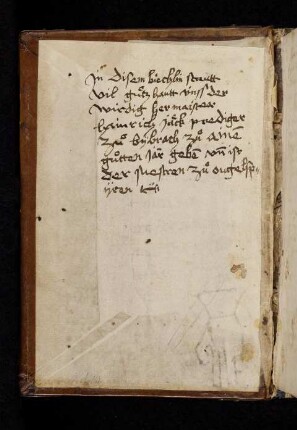 Jn disem biechlin stautt
vil guͦtz hautt vnss der
wirdig her maister
hainrich Jäck prediger
zuͦ bybrach zuͦ ainē
guͦtten jar geben vn̄ ist
der swestren zuͦ